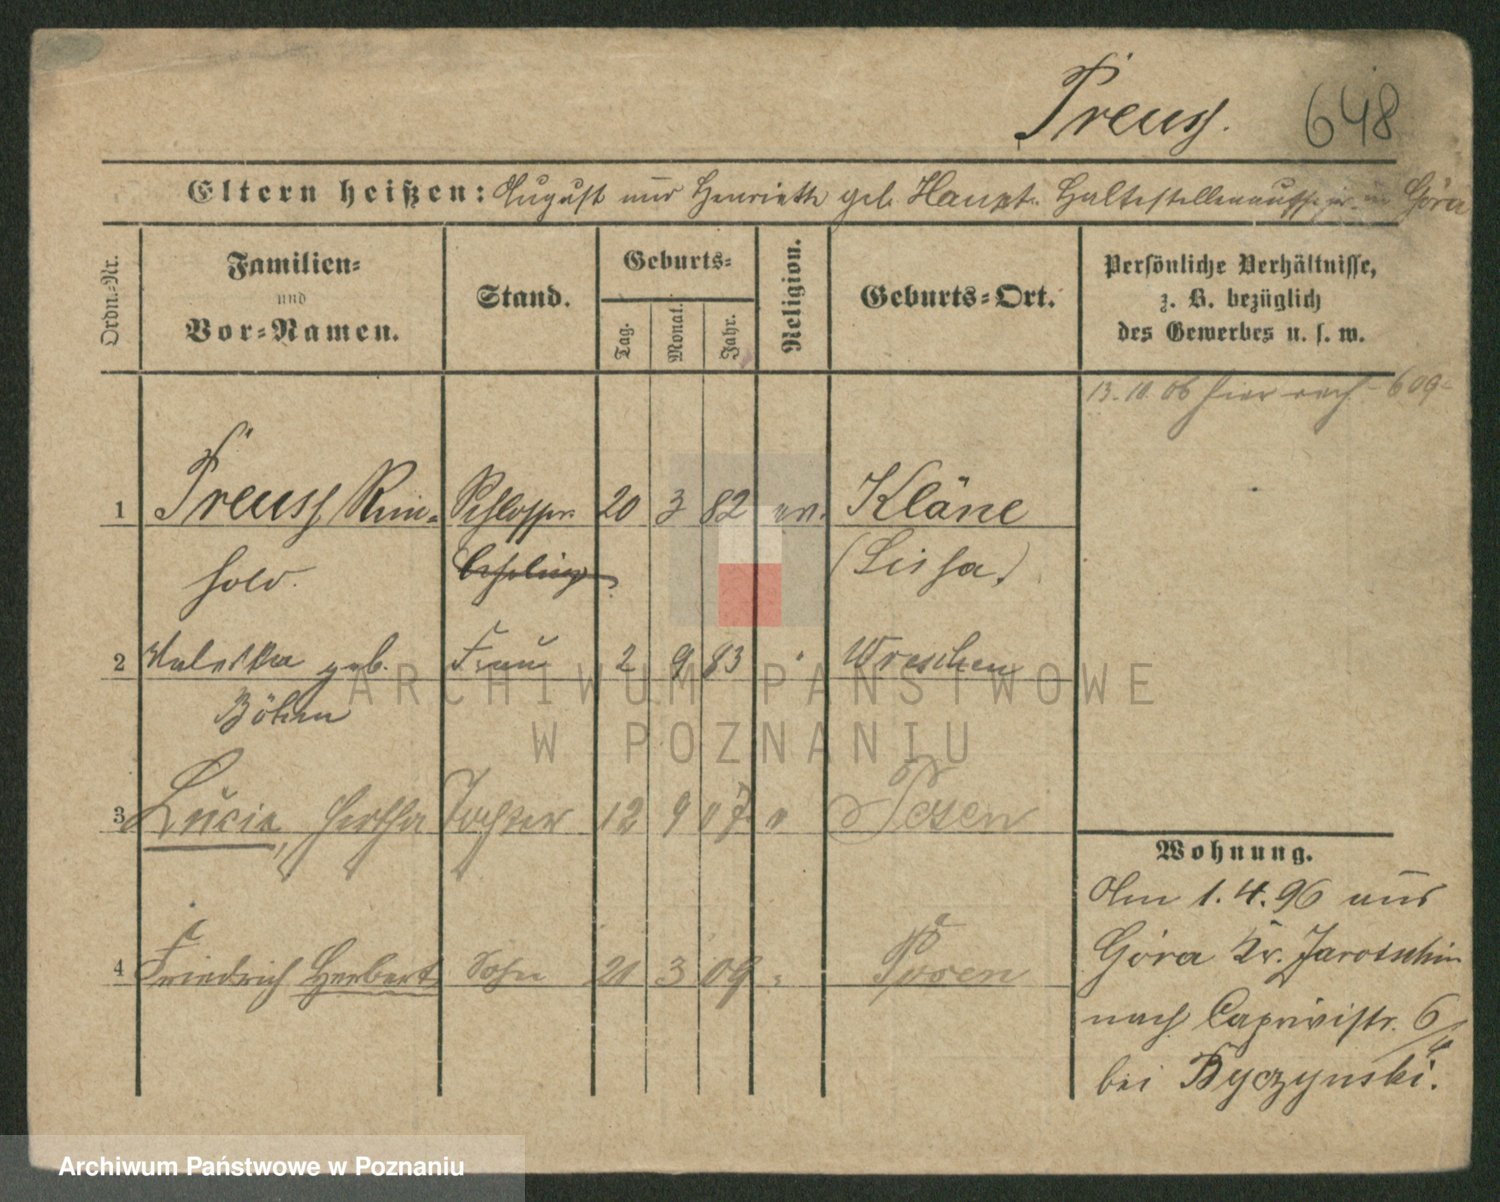 Preuss.
648
Eltern heißen: August und Henriette geb. Haupt. Haltestellenaufseher in Góra
Ordn.-Nr.
Familien-
und
Vor-Namen.
Stand.
Geburts-
Tag.
Monat.
Jahr.
Religion.
Geburts-Ort.
Persönliche Verhältnisse,
z. B. bezüglich
des Gewerbes u. s. w.
13.10.06 hier nach 609
1 Preuss Rein- Schlosser 20 3 82 ev. Kläne
hold. Lehrling (Lissa)
2 Valeska geb. Frau 2 9 83 " Wreschen
Böhm
3 Lucie, Hertha Tochter 12 9 07 " Posen
4 Friedrich Herbert Sohn 21 3 09 " Posen
Wohnung.
Am 1.4.96 aus
Góra Kr. Jarotschin
nach Caprivistr. 6/
bei Byczynski.
ARCHIWUM PAŃSTWOWE
W POZNANIU
Archiwum Państwowe w Poznaniu